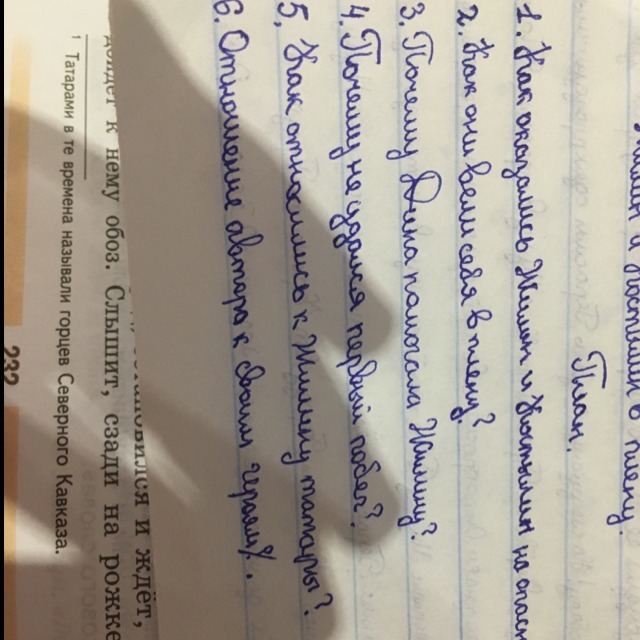 Жилин и Костылин в плену.
План.
1. Как оказались Жилин и Костылин на опасн
2. Как они вели себя в плену?
3. Почему Дина помогала Жилину?
4. Почему не удался первый побег?
5. Как относились к Жилину татары?
6. Отношение автора к своим героям.
и ждёт,
к нему обоз. Слышит, сзади на рожке
1 Татарами в те времена называли горцев Северного Кавказа.
232